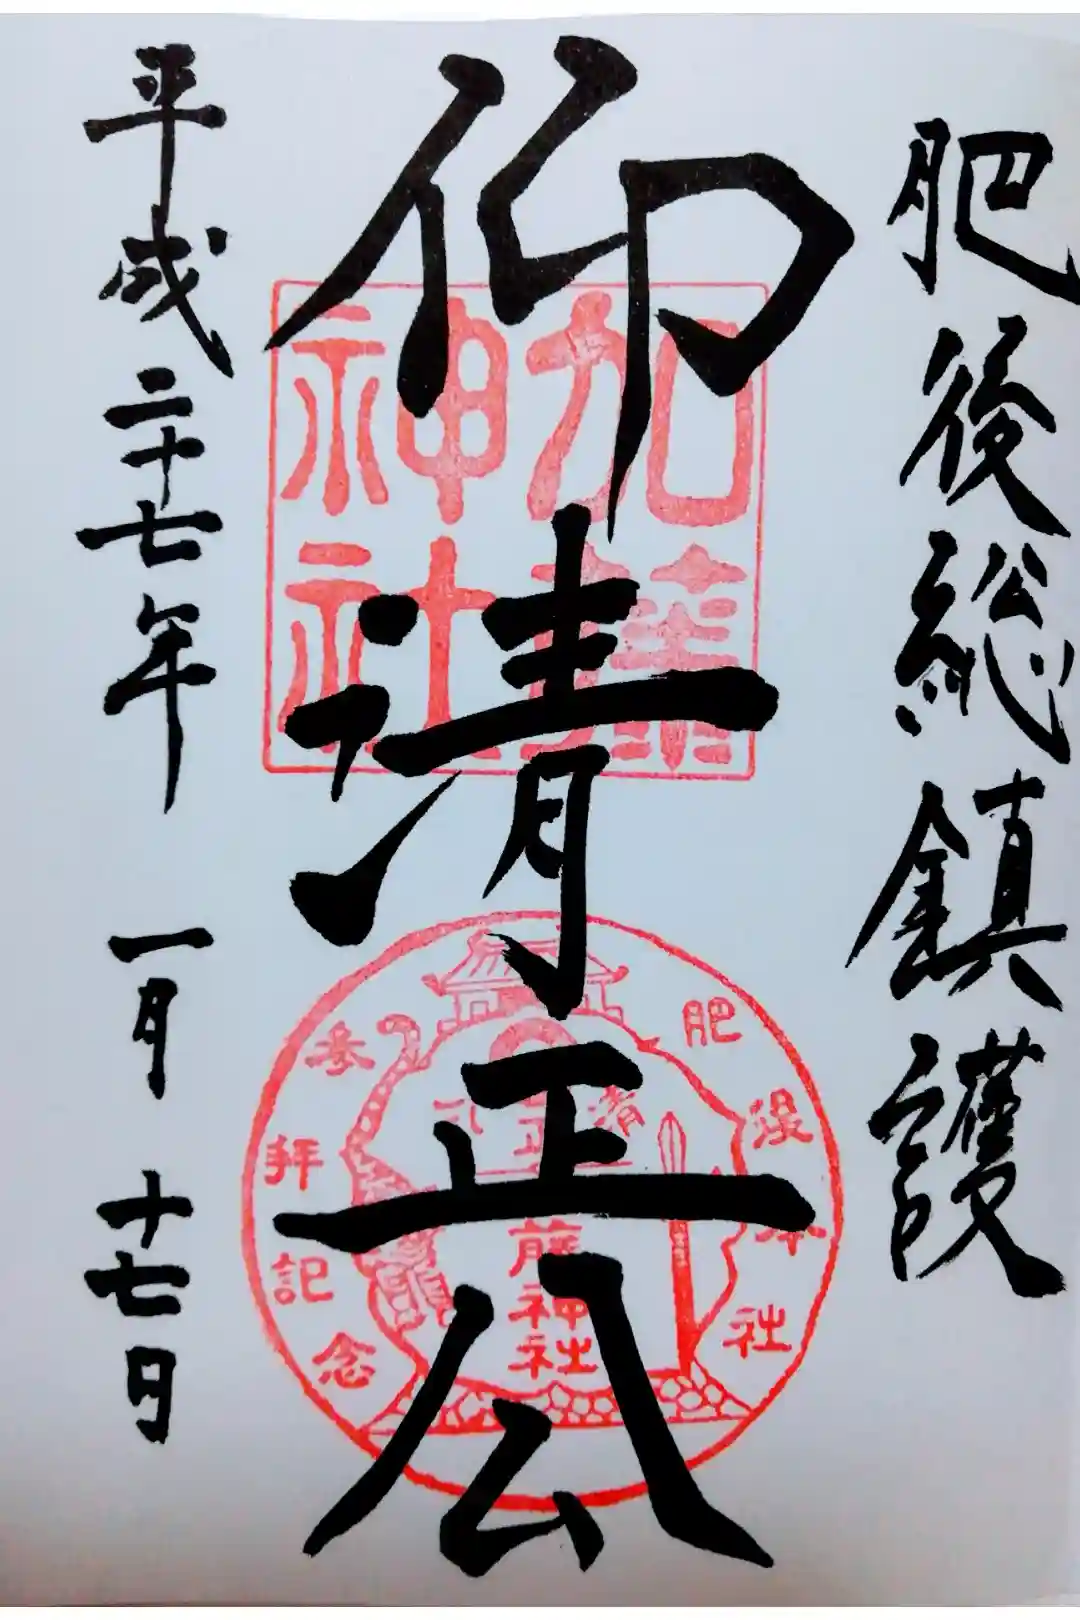 肥後総鎮護
仰清正公
平成二十七年 一月 十七日
加藤神社
肥後本社
参拝記念
清正公
藤神社